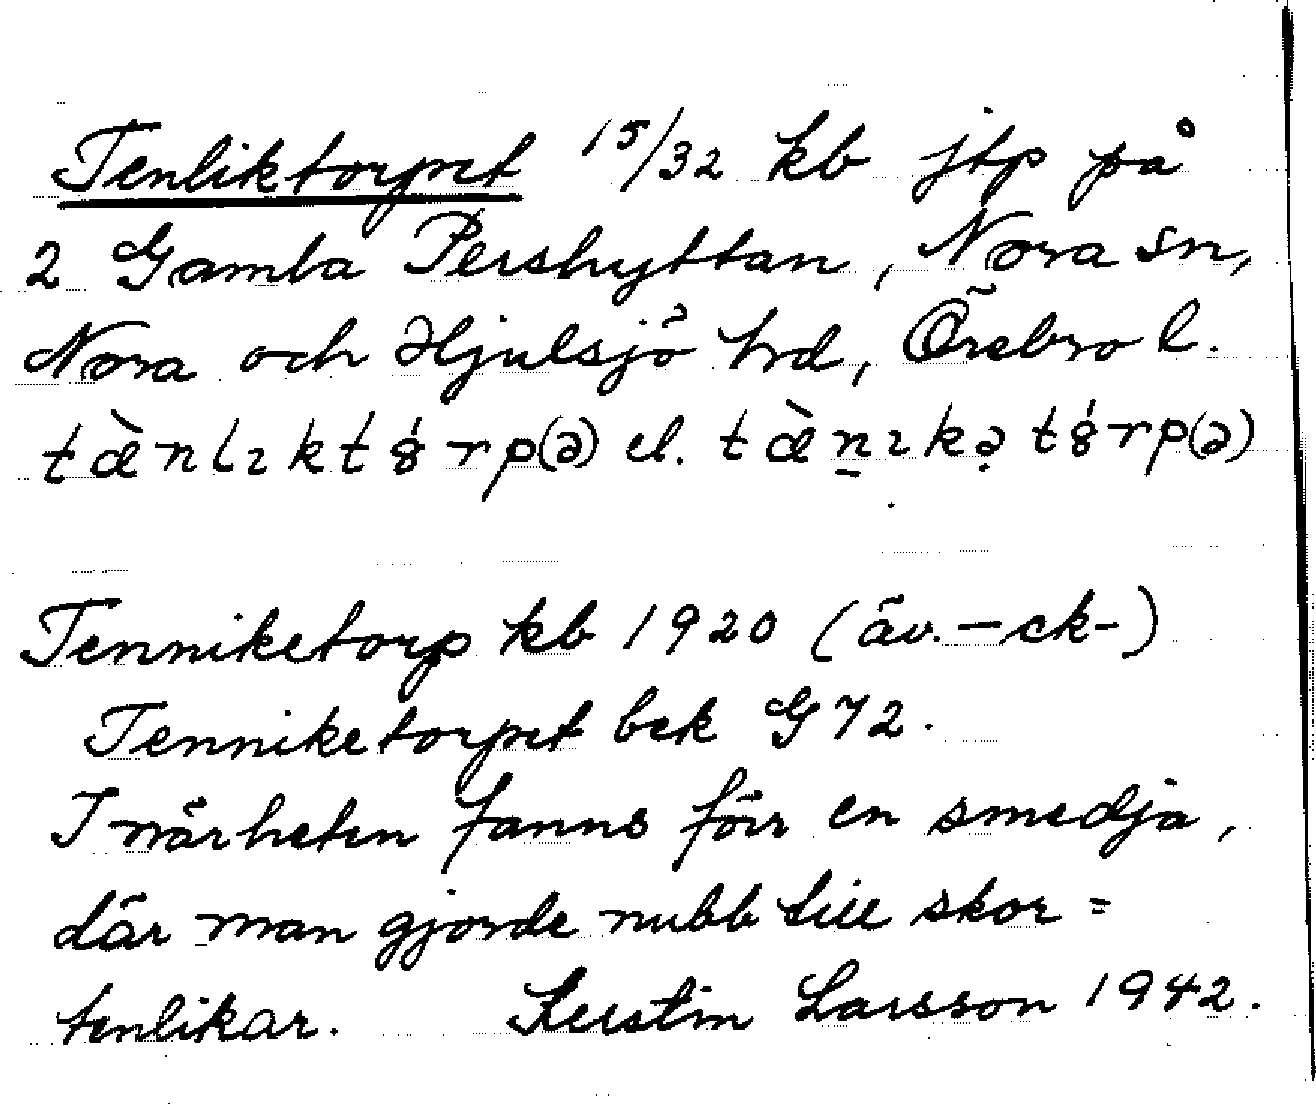 Tenliktorpet 15/32 kb jtp på
2 Gamla Pershyttan, Nora sn,
Nora och Hjulsjö hrd, Örebro l.
tæ̀nlɩktȣ́rp(ə) el. tæ̀n̠ɩkə̣tȣ́rp(ə)
Tenniketorp kb 1920 (äv. -ck-)
Tenniketorpet bek G72.
I närheten fanns förr en smedja,
där man gjorde nubb till skor =
tenlikar. Kerstin Larsson 1942.